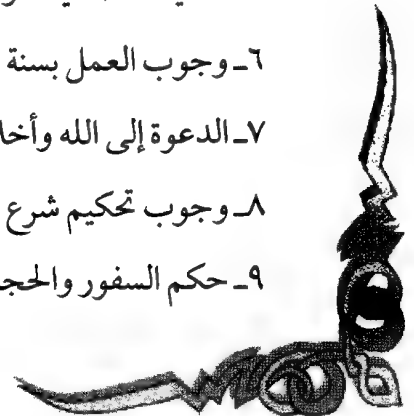 ٦ـ وجوب العمل بسنة
٧ـ الدعوة إلى الله وأخلا
٨ـ وجوب تحكيم شرع
٩ـ حكم السفور والحجا